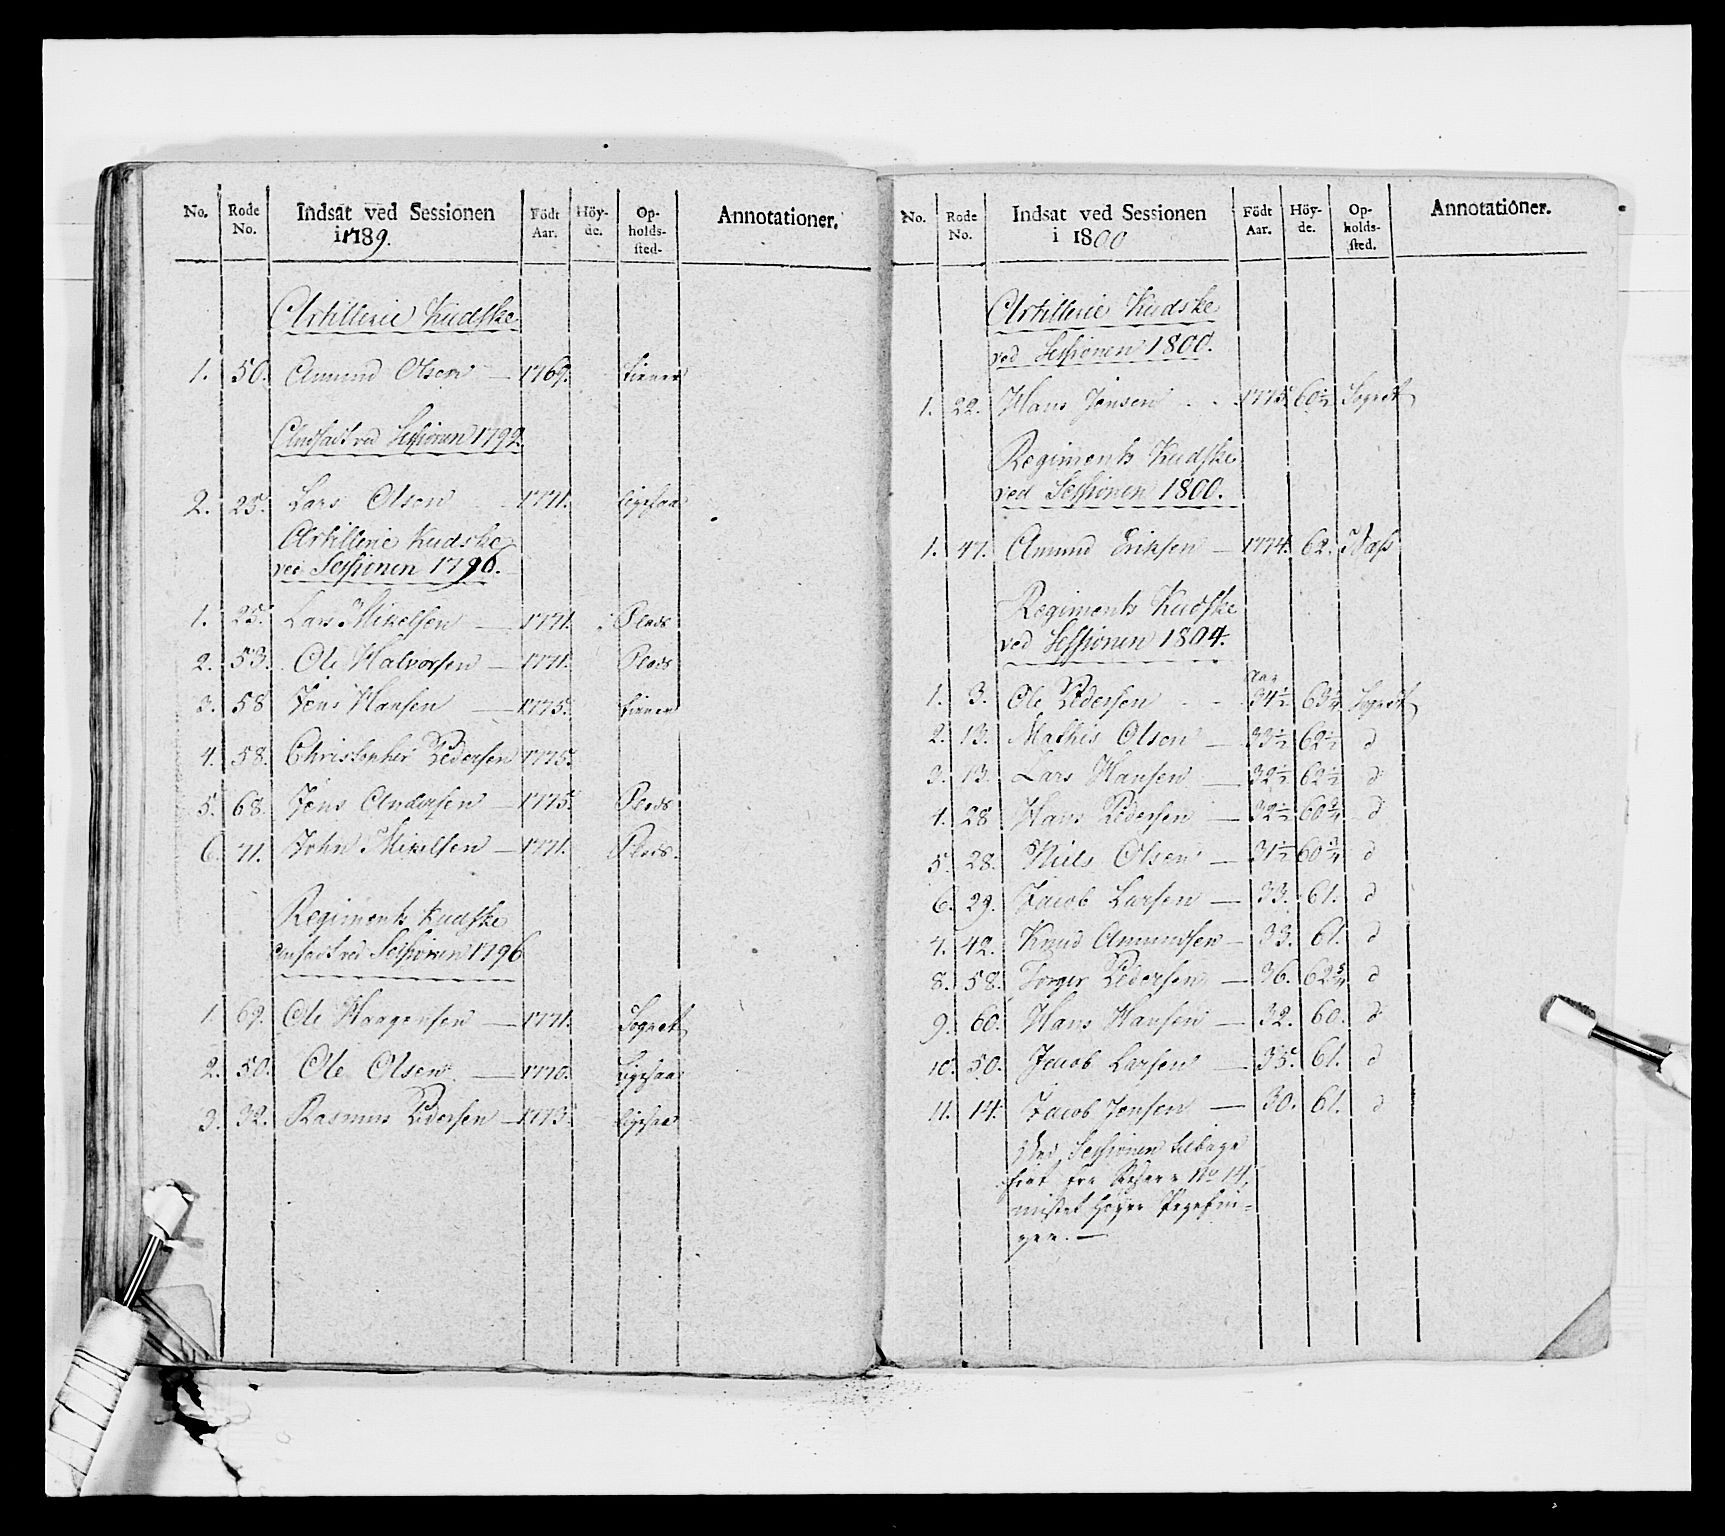 No. Rode No. Indsat ved Sessionen i 1789. Födt Aar. Höy-de. Op-holds-sted. Annotationer.
Artillerie Kudske
1. 50. Amund Olsen — 1769. tiener
Ansadt ved Sessionen 1792.
2. 25. Lars Olsen 1771. ligesaa
Artillerie Kudske
ved Sessionen 1796.
1. 25. Lars Mikelsen — 1771. Plads
2. 53. Ole Halvorsen — 1771. Plads
3. 58 Jens Hansen — 1775. tiener
4. 58. Christopher Pedersen 1775.
5. 68. Jens Andersen — 1775. Plads
6. 71. John Mikelsen — 1771. Plads.
Regiments Kudske
ansadt ved Sessionen 1796
1. 69. Ole Haagensen — 1771. Sognet
2. 50. Ole Olsen — 1770. Ligesaa
3. 32. Rasmus Pedersen — 1773. ligesaa
No. Rode No. Indsat ved Sessionen i 1800 Födt Aar. Höy-de. Op-holds-sted. Annotationer.
Artillerie Kudske
ved Sessionen 1800.
1. 22. Hans Jensen 1775. 60½ Sognet
Regiments Kudske
ved Sessionen 1800.
1. 47. Amund Eriksen — 1774. 62.
Regiments Kudske
ved Sessionen 1804.
Aar
1. 3. Ole Pedersen 34½ 63¼ Sognet
2. 13. Mathis Olsen — 33½ 62½ d
3. 13. Lars Hansen — 32½ 62½ d
4. 28 Hans Pedersen — 32½ 60¾ d
5. 28. Niels Olsen — 31½ 60¾ d
6. 29. Jacob Larsen — 33. 61. d
7. 42. Knud Amundsen — 33. 61. d
8. 58. Torger Pedersen — 36. 62¾ d
9. 60. Hans Hansen — 32. 60. d
10. 50. Jacob Larsen — 35. 61. d
11. 14. Jacob Jensen — 30. 61. d
Ved Sessionen tilbage
sat fra No 14,
mistet høyre Pegefin-
ger. —